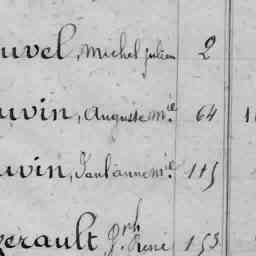 uvel, Michel Julien 2
uvin, Auguste Mie. 64
uvin, Paul anne Mie. 115
zerault Jph. René 153